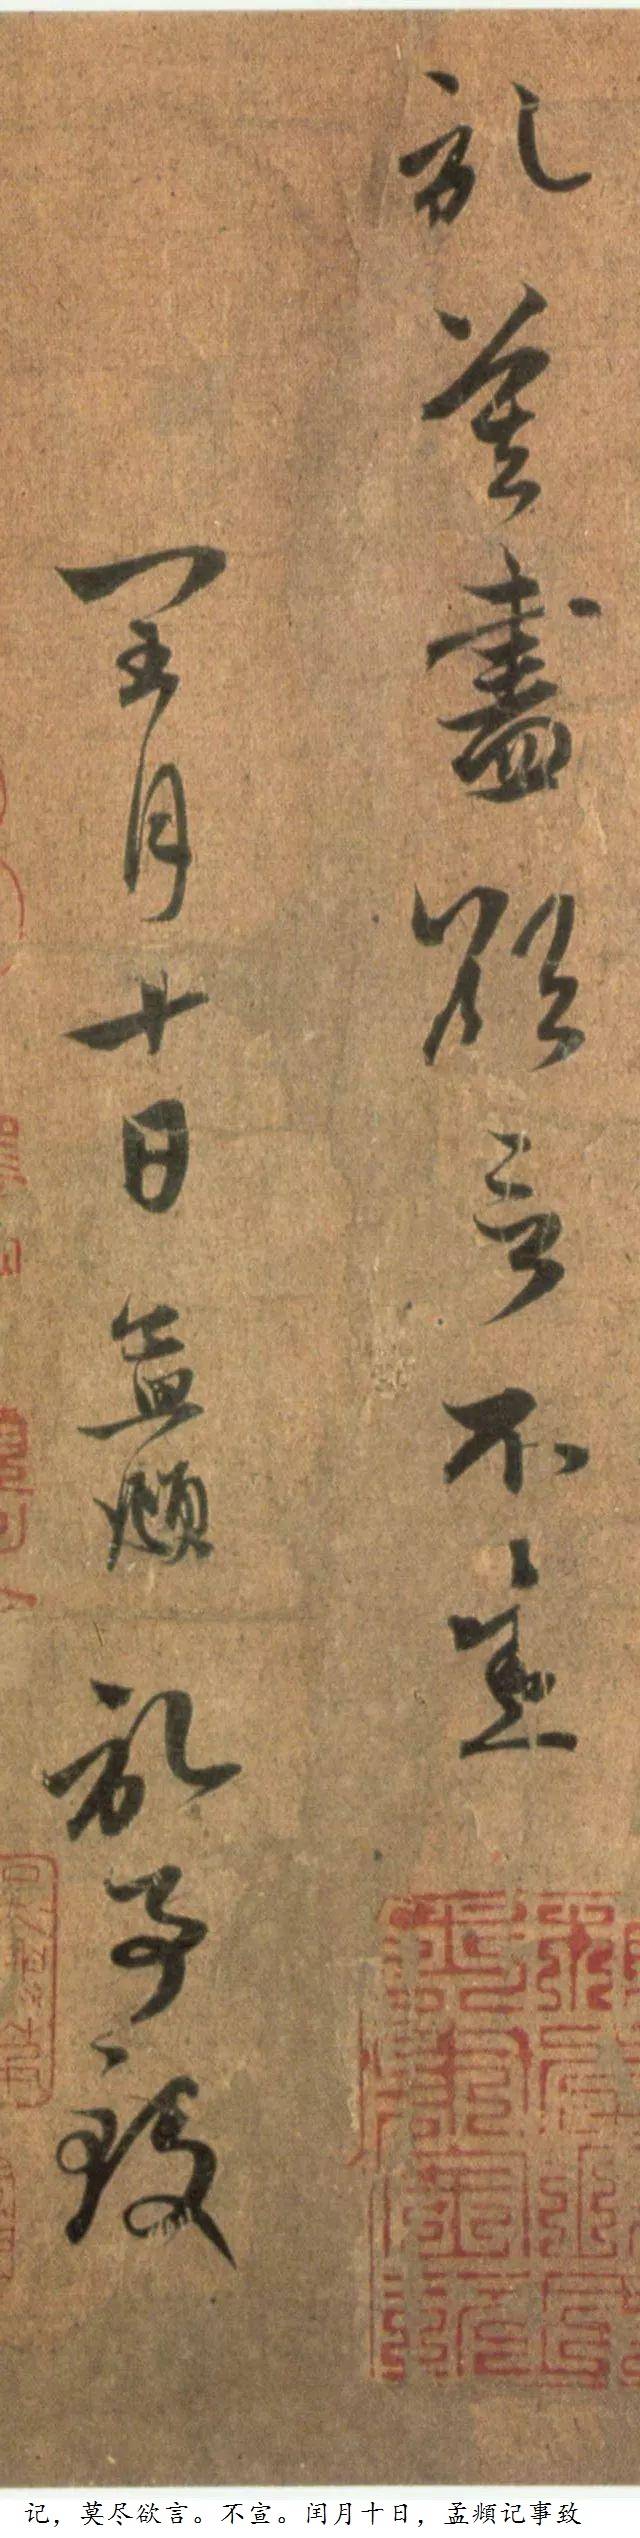 記莫盡欲言不宣
閏月十日孟頫記事致
记，莫尽欲言。不宣。闰月十日，孟頫记事致